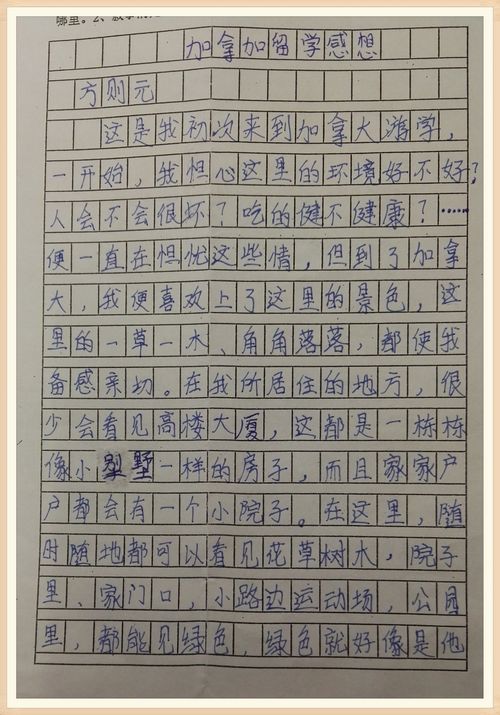 哪里。2、
加拿加留学感想
方则元
这是我初次来到加拿大游学，
一开始，我怛心这里的环境好不好？
人会不会很坏？吃的健不健康？……
便一直在怛忧这些情，但到了加拿
大，我便喜欢上了这里的景色，这
里的一草一木、角角落落，都使我
备感亲切。在我所居住的地方，很
少会看见高楼大厦，这都是一栋栋
像小墅一样的房子，而且家家户
户都会有一个小院子。在这里，随
时随地都可以看见花草树木，院子
里、家门口，小路边运动场，公园
里，都能见绿色，绿色就好像是他